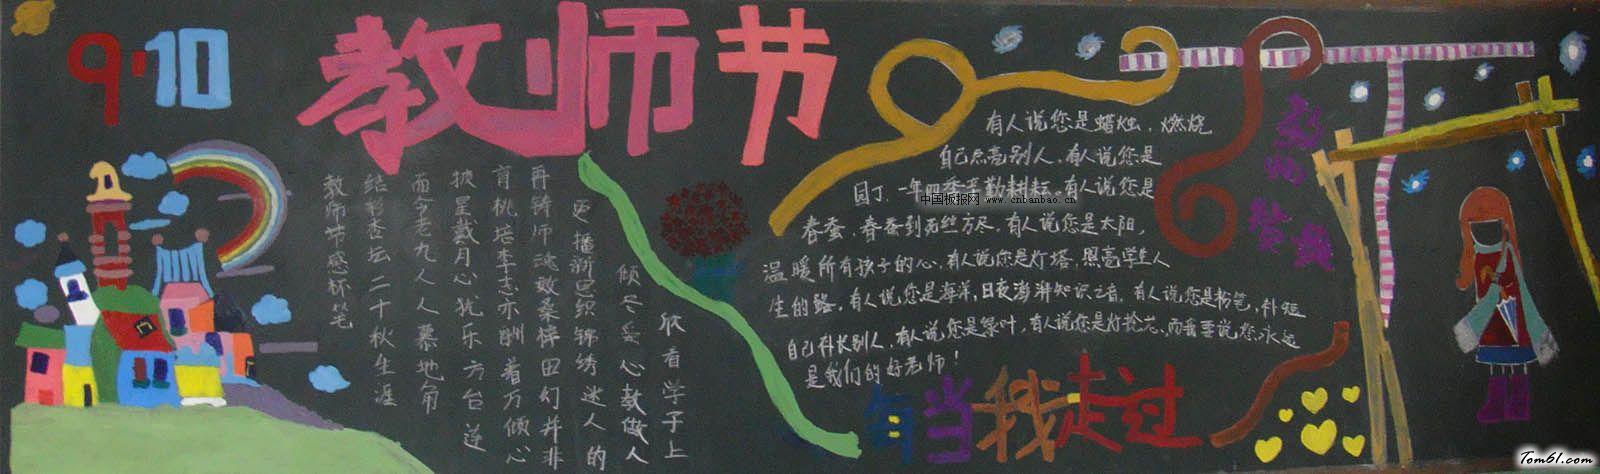 9·10
教师节
教师节感怀笔
结彩杏坛二十秋生涯
而今老九人人慕地角
披星戴月心犹乐方台莲
育桃培李志亦酬着万倾心
再铸师魂效桑梓田幻并非
更播新思织锦绣迷人的
倾尽爱心教做人
欣看学子上
有人说您是蜡烛，燃烧
自己点亮别人，有人说您是
园丁，一年四季辛勤耕耘。有人说您是
春蚕，春蚕到死丝方尽，有人说您是太阳，
温暖所有孩子的心，有人说您是灯塔，照亮学生人
生的路，有人说您是海洋，日夜澎湃知识之音，有人说您是粉笔，补短
自己补长别人，有人说您是绿叶，有人说您是灯捻芯，而我要说您永远
是我们的好老师！
每当我走过
中国板报网 www.cnbanbao.cn
Tom61.com